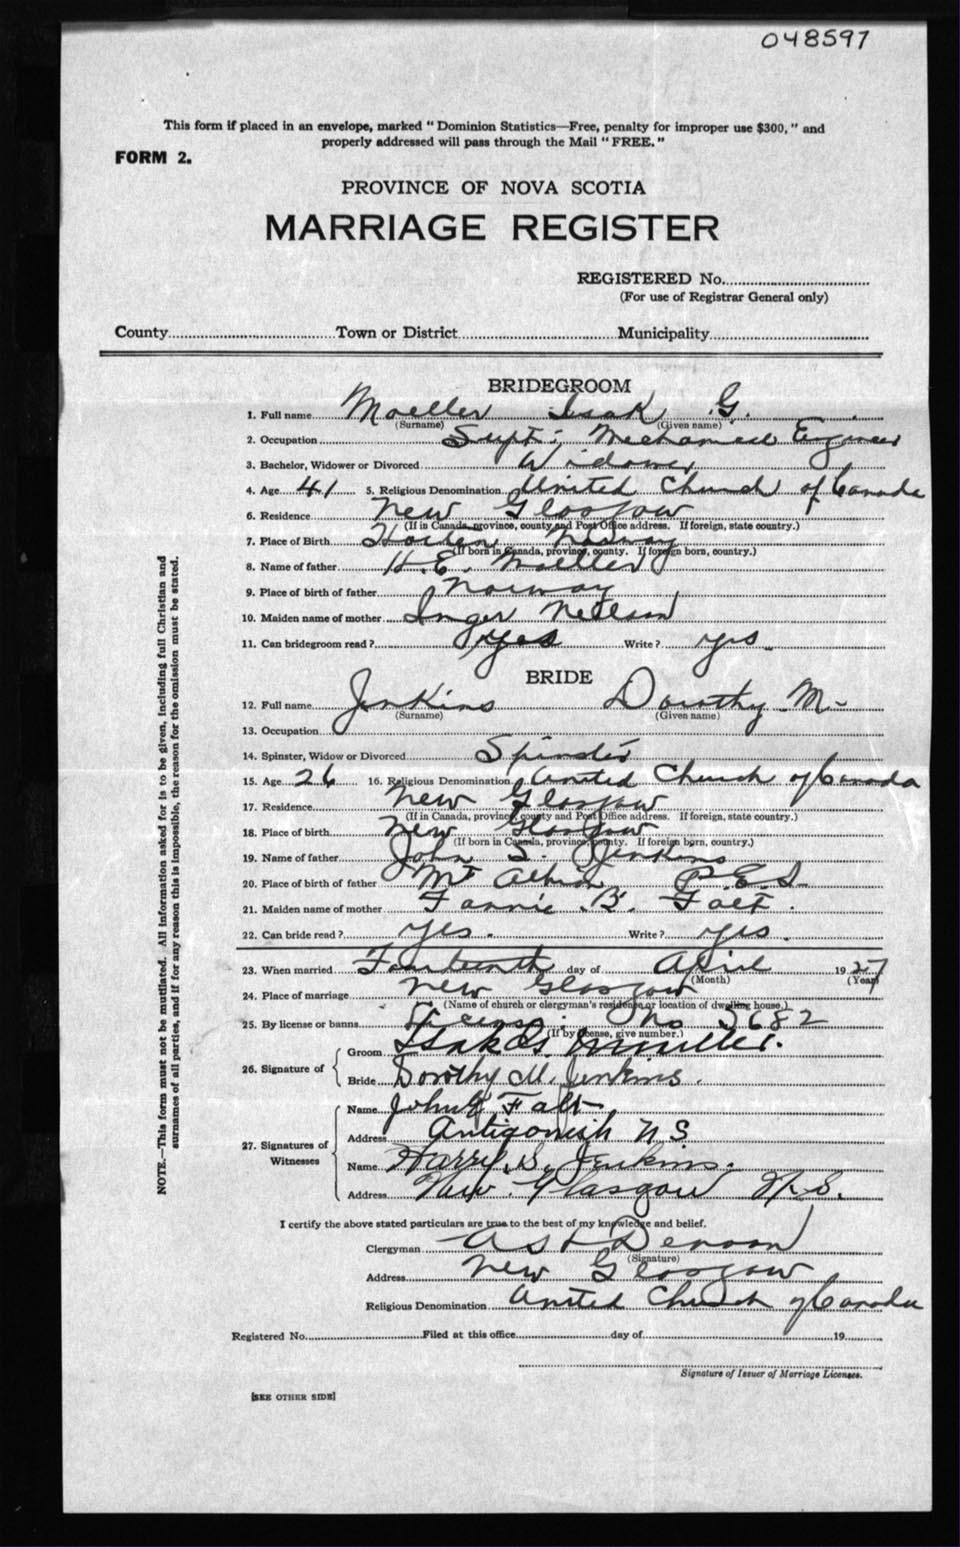 048597
This form if placed in an envelope, marked "Dominion Statistics—Free, penalty for improper use $300," and
properly addressed will pass through the Mail "FREE."
FORM 2.
PROVINCE OF NOVA SCOTIA
MARRIAGE REGISTER
REGISTERED No.
(For use of Registrar General only)
County Town or District Municipality
BRIDEGROOM
1. Full name Moeller Isak G.
(Surname) (Given name)
2. Occupation Supt. Mechanical Engineer
3. Bachelor, Widower or Divorced Widower
4. Age 41 5. Religious Denomination United Church of Canada
6. Residence New Glasgow
(If in Canada, province, county and Post Office address. If foreign, state country.)
7. Place of Birth Norway
(If born in Canada, province, county. If foreign born, country.)
8. Name of father H. E. Moeller
9. Place of birth of father Norway
10. Maiden name of mother Inger
11. Can bridegroom read? Yes Write? Yes
BRIDE
12. Full name Jenkins Dorothy M.
(Surname) (Given name)
13. Occupation
14. Spinster, Widow or Divorced Spinster
15. Age 26 16. Religious Denomination United Church of Canada
17. Residence New Glasgow
(If in Canada, province, county and Post Office address. If foreign, state country.)
18. Place of birth New Glasgow
(If born in Canada, province, county. If foreign born, country.)
19. Name of father John S. Jenkins
20. Place of birth of father Mt Albion P.E.I.
21. Maiden name of mother Fannie B. Falt.
22. Can bride read? Yes. Write? Yes.
23. When married Fourteenth day of April 1927
(Month) (Year)
24. Place of marriage New Glasgow
(Name of church or clergyman's residence or location of dwelling house.)
25. By license or banns License No 5682
(If by license, give number.)
26. Signature of
Groom Isak G. Moeller.
Bride Dorothy M. Jenkins.
27. Signatures of Witnesses
Name John G Falt
Address Antigonish N S
Name Harry S. Jenkins.
Address New Glasgow N.S.
I certify the above stated particulars are true to the best of my knowledge and belief.
Clergyman Denoon
(Signature)
Address New Glasgow
Religious Denomination United Church of Canada
Registered No. Filed at this office day of 19
Signature of Issuer of Marriage Licenses.
[SEE OTHER SIDE]
NOTE.—This form must not be mutilated. All information asked for is to be given, including full Christian and
surnames of all parties, and if for any reason this is impossible, the reason for the omission must be stated.